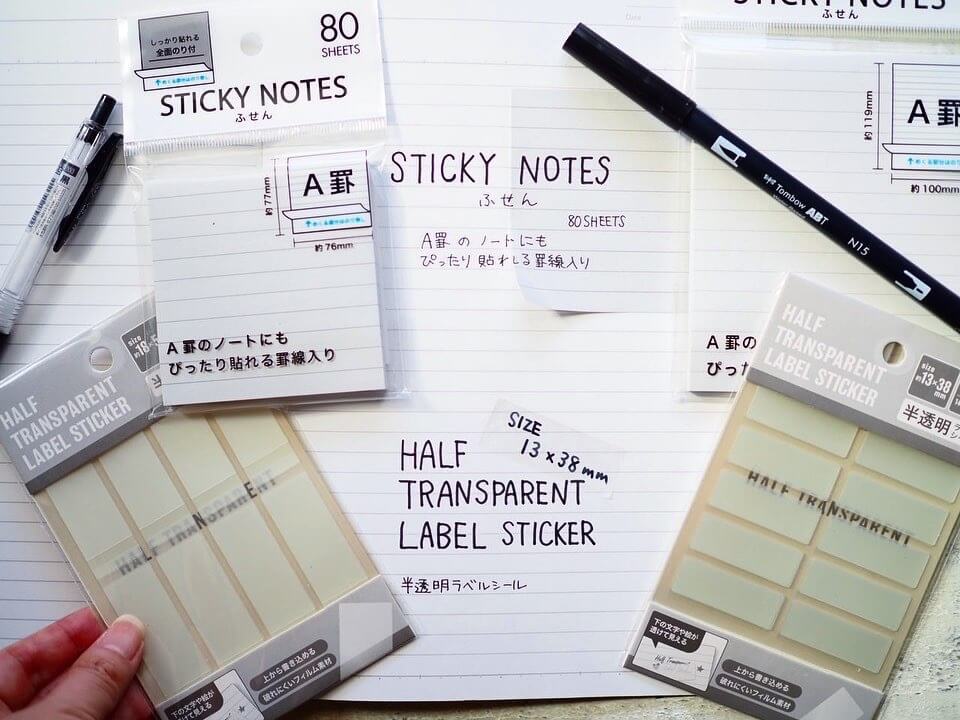 しっかり貼れる
全面のり付
80
SHEETS
STICKY NOTES
ふせん
約77mm
A罫
約76mm
A罫のノートにも
ぴったり貼れる罫線入り
STICKY NOTES
ふせん
80SHEETS
A罫のノートにも
ぴったり貼れる罫線入り
Tombow ABT
N15
STICKY NOTES
ふせん
約119mm
A罫
約100mm
A罫の
ぴった
HALF
TRANSPARENT
LABEL STICKER
size
HALF TRANSPARENT
下の文字や絵が
透けて見える
上から書き込める
破れにくいフィルム素材
SIZE
13×38mm
HALF
TRANSPARENT
LABEL STICKER
半透明ラベルシール
HALF
TRANSPARENT
LABEL STICKER
size
約13×38
mm
半透明
HALF TRANSPARENT
下の文字や絵が
透けて見える
Half Transparent
上から書き込める
破れにくいフィルム素材